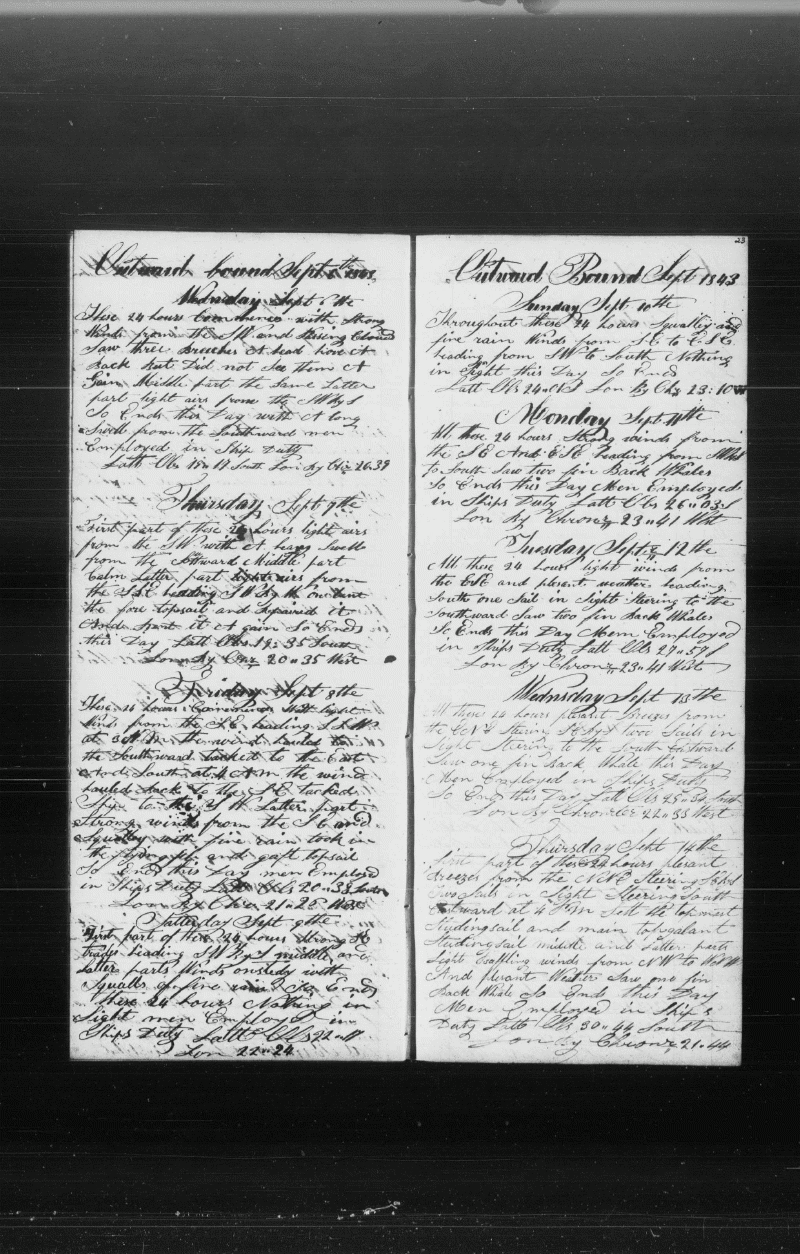 Outward bound Sept 6th 1843
Wednesday Sept 6 the
These 24 hours Commence with Strong
Winds from the SW and Rising Clouds
Saw three Breeches A head hove A
Back But Did not See them A
Gain Middle part the Same Latter
part light airs from the SW by S
So Ends this Day with A long
Swell from the Southward men
Employed in Ship Duty
Latt Obs 18 11 South Lon By Chr 26:39
Thursday Sept 7the
First part of these 24 hours light airs
from the SW with A heavy Swell
from the Southward Middle part
Calm Latter part light airs from
the heading SW By W
the fore topsail and Repaired it
And Bent it A gain So Ends
this Day Latt Obs 19:35 South
Lon By Chr 20:35 West
Friday Sept 8the
These 24 hours Commence With light
Winds from the SE heading
at 3 the wind hauled to
the Southward tacked to the East
And South at 4 A M the wind
hauled Back to the SE tacked
Ship to the SW Latter part
Strong winds from the SE and
Squally with fine rain took in
the flying jib and gaft topsail
So End this Day men Employed
in Ships Duty Latt Obs 20:53 South
Lon By Chr 21:26 West
Satterday Sept 9the
First part of these 24 hours Strong SE
trades heading SW By S middle and
Latter parts Winds with
Squalls of fine rain So Ends
these 24 hours Nothing in
Sight men Employed in
Ships Duty Latt Obs 22 11
Lon 22 24
23
Outward Bound Sept 1843
Sunday Sept 10the
Throughout these 24 hours Squalley and
fine rain Winds from SE to ESE
heading from SW to South Nothing
in Sight this Day So Ends
Latt Obs 24 S Lon By Chr 23:10 W
Monday Sept 11the
All these 24 hours Strong winds from
the SE And ESE heading from
to South Saw two fin Back Whales
So Ends this Day Men Employed
in Ships Duty Latt Obs 26 03 S
Lon By Chron 23 41 West
Tuesday Sept 12the
All these 24 hours light winds from
the ESE and plesent weather heading
South one Sail in Sight Steering to the
Southward Saw two fin Back Whales
So Ends this Day Mem Employed
in Ships Duty Latt Obs 27 59 S
Lon By Chron 23 41 West
Wednsday Sept 13the
All these 24 hours plesant Breezes from
the ENE Steering S By S two Sails in
Sight Steering to the South Eastward
Saw one fin Back Whale this Day
Men Employed in Ships Duty
So End this Day Latt Obs South
Lon By Chron 22 53 West
Thursday Sept 14the
first part of these 24 hours plesant
Breezes from the NNE Steering
Two Sails in Sight Steering South
Eastward at 4 P M Sett the topmast
Studingsail and main topgalant
Studingsail middle and Latter parts
Light Baffling winds from NW to
And plesant Weather Saw one fin
Back Whale So Ends this Day
Men Employed in Ship s
Duty Latt Obs 30 44 South
Lon By Chron 21 44